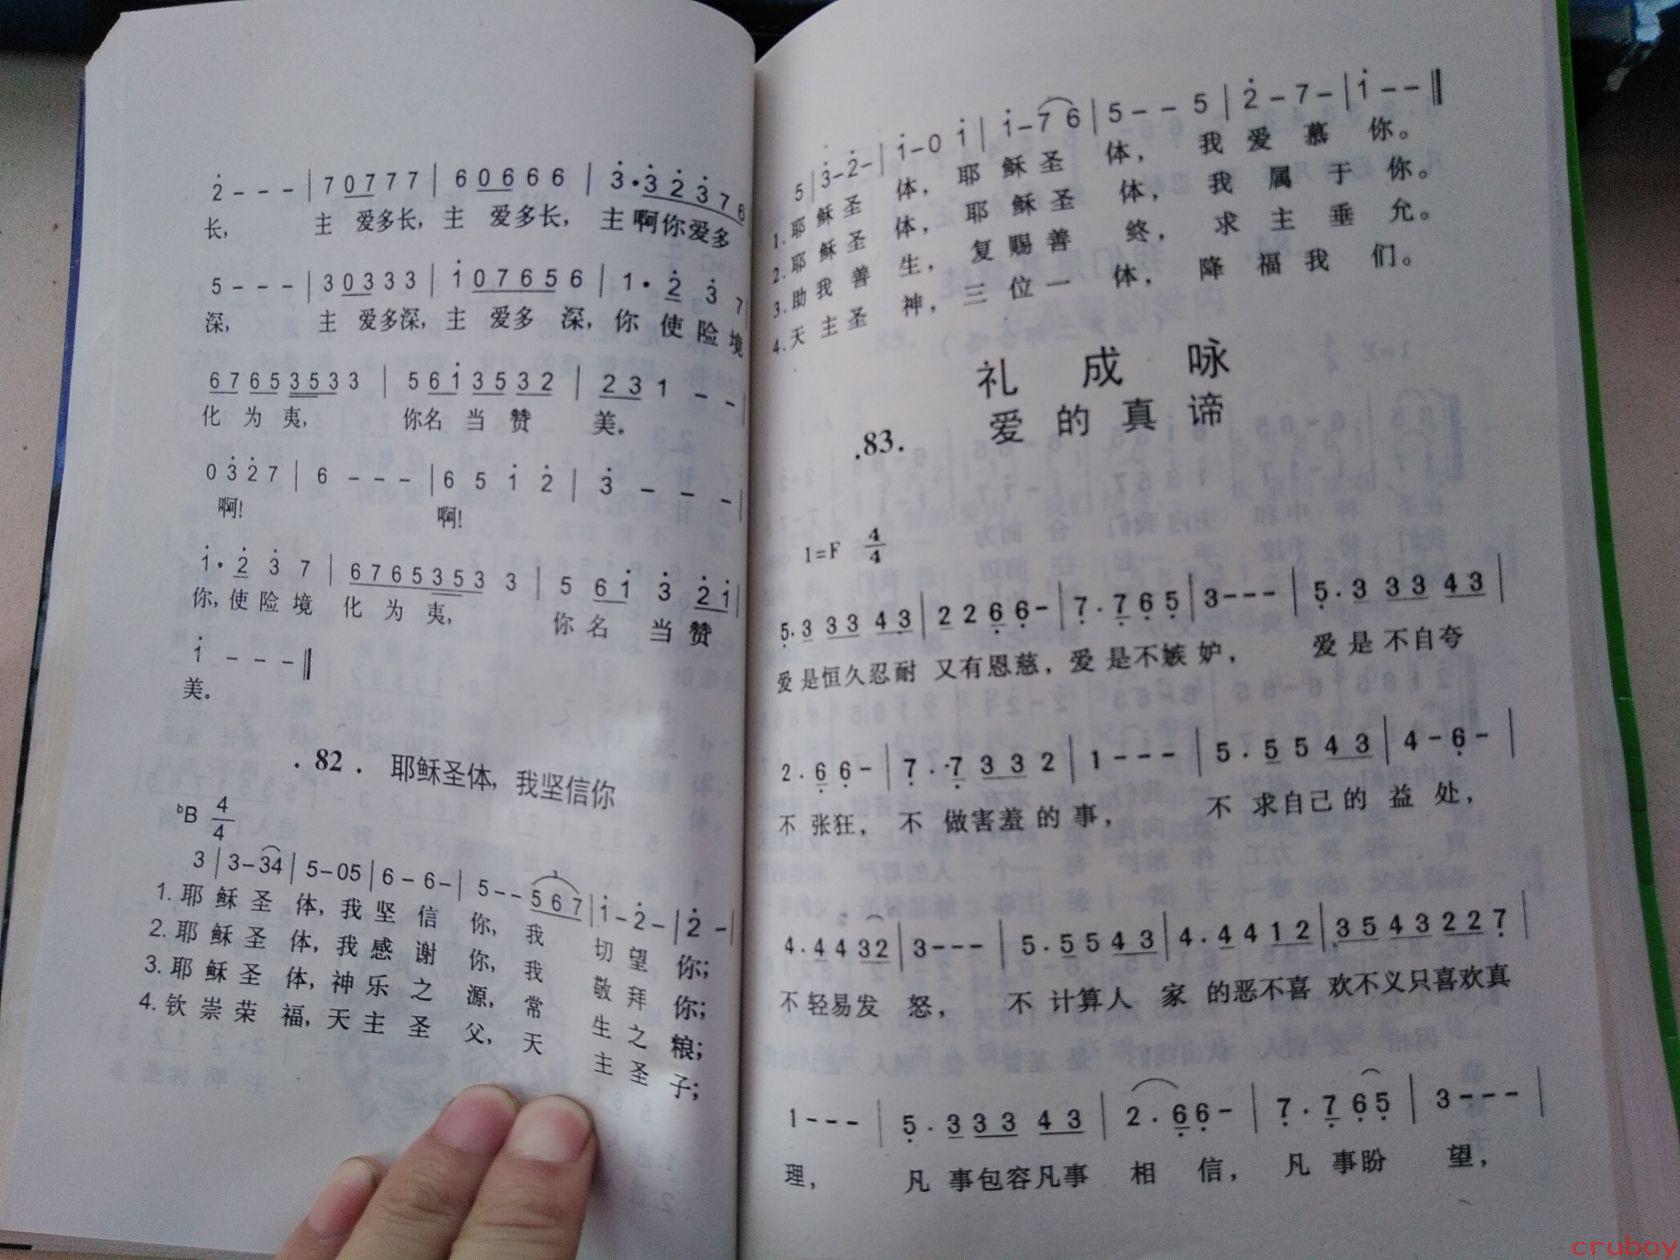 2̇ - - - | 7 0 7 7 7 | 6 0 6 6 6 | 3̇·3̇ 2̇ 3̇ 7 6
长, 主 爱多长, 主 爱多长, 主 啊你爱多
5 - - - | 3 0 3 3 3 | 1̇ 0 7 6 5 6 | 1· 2̇ 3̇ 7
深, 主 爱多深, 主 爱多 深, 你 使 险 境
6 7 6 5 3 5 3 3 | 5 6 1̇ 3 5 3 2 | 2 3 1 - -
化 为 夷, 你名 当 赞 美.
0 3̇ 2̇ 7 | 6 - - - | 6 5 1̇ 2̇ | 3̇ - - -
啊! 啊!
1̇· 2̇ 3̇ 7 | 6 7 6 5 3 5 3 3 | 5 6 1̇ 3̇ 2̇ 1̇
你, 使 险 境 化 为 夷, 你 名 当 赞
1̇ - - -
美.
.82. 耶稣圣体, 我坚信你
♭B 4/4
3 | 3 - 3 4 | 5 - 0 5 | 6 - 6 - | 5 - - 5 6 7 | 1̇ - 2̇ - | 2̇ -
1. 耶 稣 圣 体, 我 坚 信 你, 我 切 望 你;
2. 耶 稣 圣 体, 我 感 谢 你, 我 敬 拜 你;
3. 耶 稣 圣 体, 神 乐 之 源, 常 生 之 粮;
4. 钦 崇 荣 福, 天 主 圣 父, 天 主 圣 子;
5 | 3̇ - 2̇ - | 1̇ - 0 1̇ | 1̇ - 7 6 | 5 - - 5 | 2̇ - 7 - | 1̇ - -
1. 耶 稣 圣 体, 耶 稣 圣 体, 我 爱 慕 你。
2. 耶 稣 圣 体, 耶 稣 圣 体, 我 属 于 你。
3. 助 我 善 生, 复 赐 善 终, 求 主 垂 允。
4. 天 主 圣 神, 三 位 一 体, 降 福 我 们。
礼 成 咏
.83. 爱 的 真 谛
1=F 4/4
5̣· 3 3 3 4 3 | 2 2 6̣ 6̣ - | 7̣ · 7̣ 6̣ 5̣ | 3 - - - | 5̣ · 3 3 3 4 3
爱 是恒久忍耐 又有恩慈, 爱 是不嫉 妒, 爱 是 不自夸
2 · 6̣ 6̣ - | 7̣ · 7̣ 3 3 2 | 1 - - - | 5 · 5 5 4 3 | 4 - 6̣ -
不 张狂, 不 做害羞 的 事, 不 求自己的 益 处,
4 · 4 4 3 2 | 3 - - - | 5 · 5 5 4 3 | 4 · 4 4 1 2 | 3 5 4 3 2 2 7̣
不轻易发 怒, 不 计算人 家 的恶不喜 欢不义只喜欢真
1 - - - | 5̣ · 3 3 3 4 3 | 2 · 6̣ 6̣ - | 7̣ · 7̣ 6̣ 5̣ | 3 - - -
理, 凡 事包容凡事 相 信, 凡 事盼 望,
cruboy